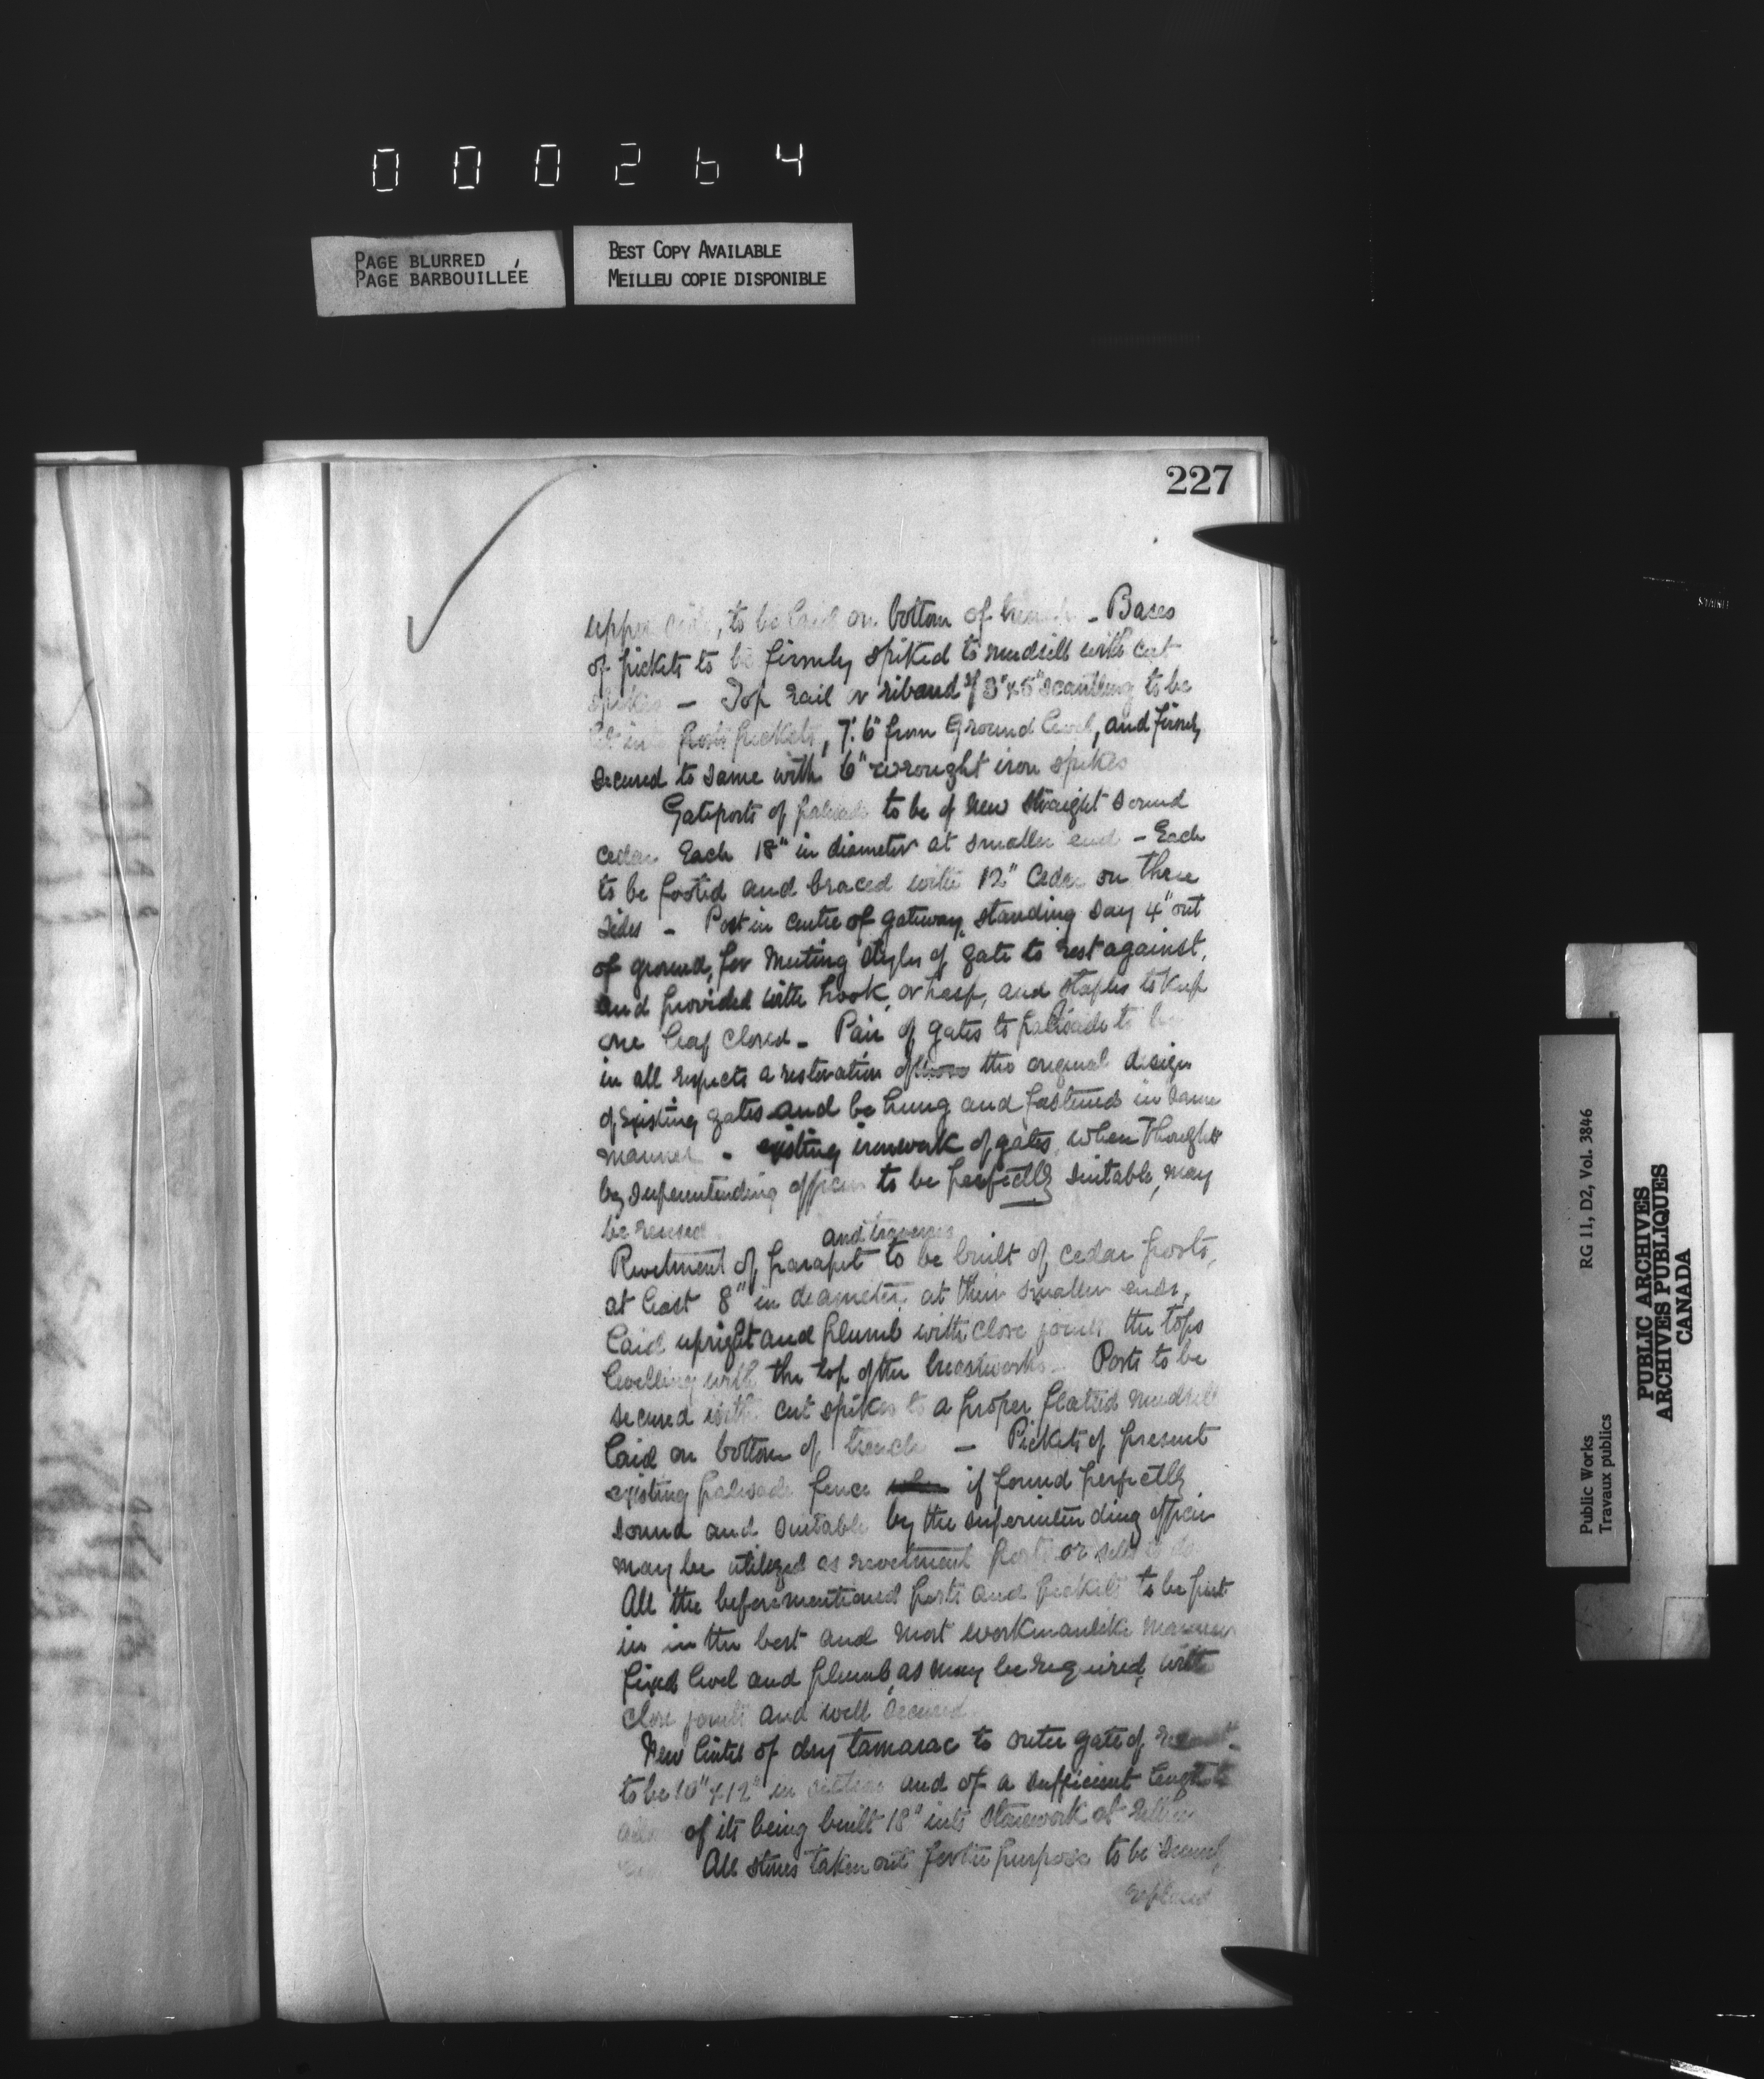 000264
PAGE BLURRED
PAGE BARBOUILLÉE
BEST COPY AVAILABLE
MEILLEU COPIE DISPONIBLE
227
upper side, to be laid on bottom of trench - Bases
of pickets to be firmly spiked to mudsill with cut
spikes - Top rail or riband of 3"x5" scantling to be
let into pickets, 7'.6" from Ground level, and firmly
secured to same with 6" wrought iron spikes
Gateposts of palisade to be of new straight sound
cedar Each 18" in diameter at smaller end - Each
to be footed and braced with 12" Cedar on three
sides - Post in centre of gateway, standing say 4" out
of ground, for meeting styles of gate to rest against,
and provided with hook, or hasp, and staples to keep
one leaf closed - Pair of gates to palisade to be
in all respects a restoration of the original design
of existing gates and be hung and fastened in same
manner - existing ironwork of gates, when thought
by superintending officer to be perfectly suitable, may
be reused.
and traverses
Revetment of parapet to be built of cedar posts,
at least 8" in diameter at their smaller ends,
laid upright and plumb with close joints the tops
levelling with the top of the breastworks - Posts to be
secured with cut spikes to a proper flatted mudsill
laid on bottom of trench - Pickets of present
existing palisade fence if found perfectly
sound and suitable by the superintending officer
may be utilized as revetment posts or sills to do
All the beforementioned posts and pickets to be put
in in the best and most workmanlike manner
fixed level and plumb, as may be required, with
close joints and well secured
New lintel of dry tamarac to outer gate of
to be 10" x 12" in section and of a sufficient length to
of its being built 18" into stonework at either
All stones taken out for the purpose to be
replaced
Public Works
Travaux publics
RG 11, D2, Vol. 3846
PUBLIC ARCHIVES
ARCHIVES PUBLIQUES
CANADA